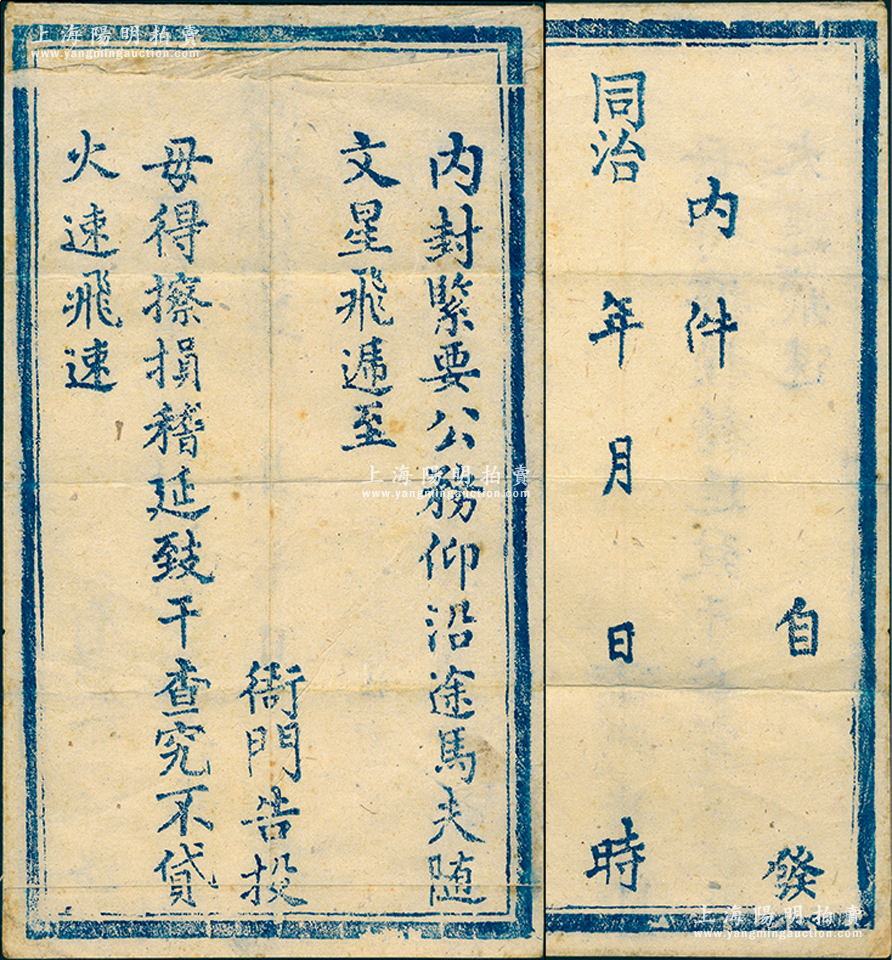 上海陽明拍賣
www.yangmingauction.com
内封緊要公務仰沿途馬夫随
文星飛遞至
衙門告投
毋得擦損稽延致干查究不貸
火速飛速
上海陽明拍賣
www.yangmingauction.com
自發
内件
同治年月日時
上海陽明拍賣
www.yangmingauction.com